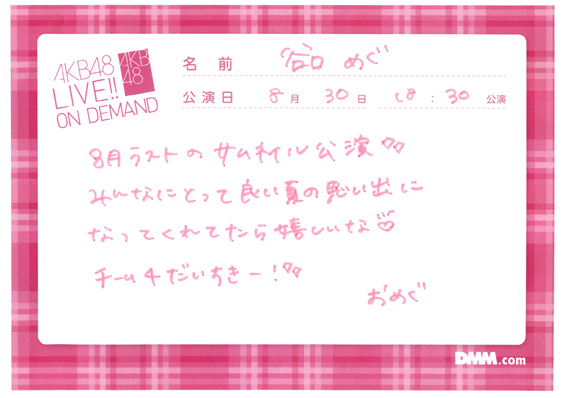 AKB48
LIVE!!
ON DEMAND
AKB
48
名前 谷口 めぐ
公演日 8月 30日 18:30 公演
8月ラストのサムネイル公演
みんなにとって良い夏の思い出に
なってくれてたら嬉しいな
チーム4だいすきー!
おめぐ
DMM.com